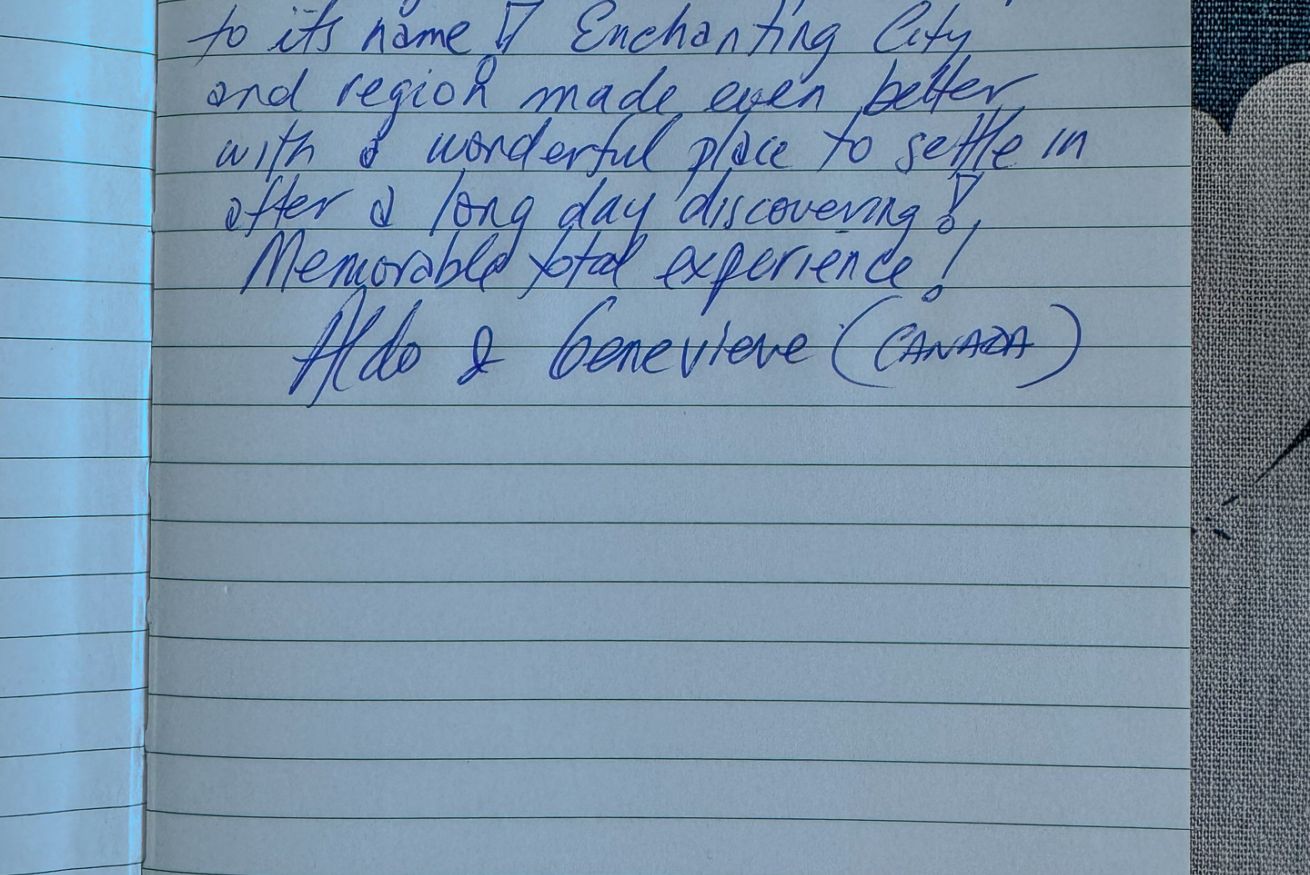 to its name! Enchanting City
and region made even better
with a wonderful place to settle in
after a long day discovering!
Memorable total experience!
Aldo & Genevieve (CANADA)